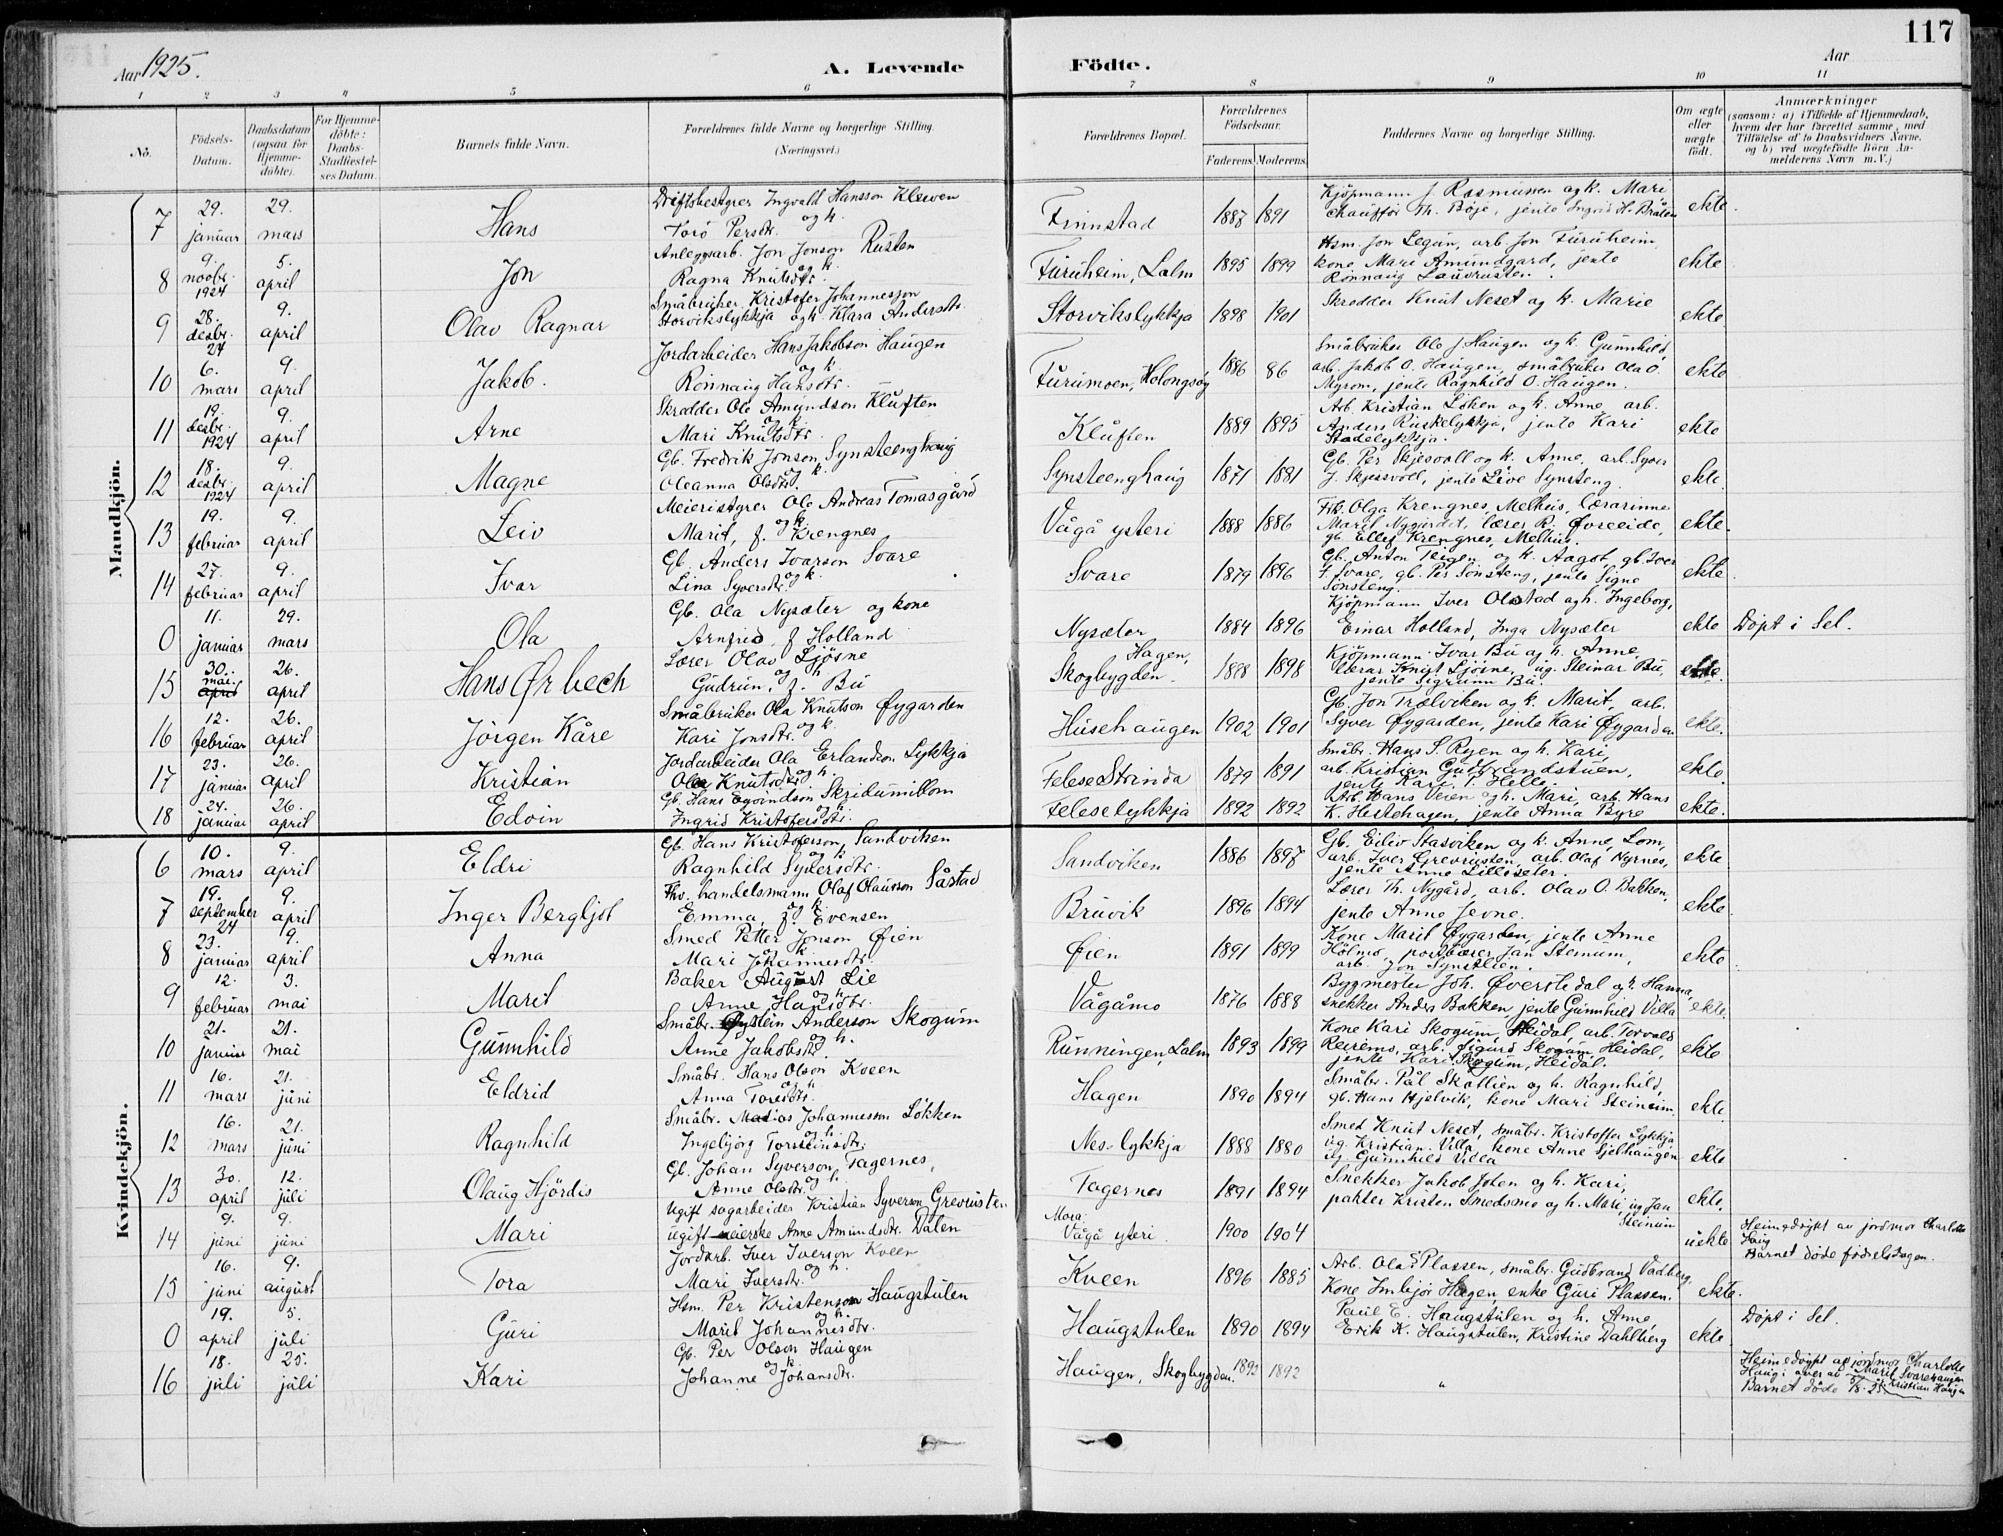 117
Aar 1925.
A. Levende Födte.
Aar
1 2 3 4 5 6 7 8 9 10 11
No.
Födsels-Datum.
Daabsdatum (ogsaa for Hjemme-döbte).
For Hjemme-döbte: Daabs-Stadfæstel-ses Datum.
Barnets fulde Navn.
Forældrenes fulde Navne og borgerlige Stilling. (Næringsvei.)
Forældrenes Bopæl.
Forældrenes Födselsaar.
Faderens. Moderens.
Faddernes Navne og borgerlige Stilling.
Om ægte eller uægte födt.
Anmærkninger
(saasom: a) i Tilfælde af Hjemmedaab, hvem der har forrettet samme, med Tilföielse af to Daabsvidners Navne. og b) ved uægtefödte Börn An-melderens Navn m. V.)
Mandkjön.
7 29. januar 29. mars Hans Driftsbestyrer Ingvald Hansson Kleiven og k. Torö Persdtr. Finnstad 1887 1891 Kjöpmann J. Rasmussen og k. Mari chaufför Th. Böje, jente Ingrid H. Bråten ekte.
8 9. novbr. 1924 5. april Jon Anleggsarb. Jon Jonson Rusten og k. Ragna Knutsdtr. Furuheim, Lalm 1895 1899 Hsm. Jon Legun, arb. Jon Furuheim, kone Mari Amundgard, jente Rönnaug ekte
9 28. desbr. 24 9. april Olav Ragnar Småbruker Kristofer Johannesson Storvikslykkja og k. Klara Andersdtr. Storvikslykkja 1898 1901 Skredder Knut Neset og k. Marie ekte
10 6. mars 9. april Jakob. Jordarbeider Hans Jakobson Haugen og k. Rönnaug Hansdtr. Furumoen, Holongsöy 1886 86 Småbruker Ole J Haugen og k. Gunnhild, arb. Jakob O. Haugen, småbruker Ola O. Myrom, jente Ragnhild O. Haugen. ekte
11 19. desbr. 1924 9. april Arne Skredder Ole Amundson Kluften og k. Mari Knutsdtr. Kluften 1889 1895 Arb. Kristian Löken og k. Anne, arb. Anders Ruskelykkja, jente Kari Stadelykkja. ekte
12 18. desbr. 1924 9. april Magne Gb. Fredrik Jonson Synsteenghaug og k. Oleanna Olsdtr. Synsteenghaug 1871 1881 Gb. Per Skjesvoll og k. Anne, arb. Syver J. Skjessvoll, jente Live Synsteng. ekte.
13 19. februar 9. april Leiv Meieristyrer Ole Andreas Tomasgård og k. Marit, f. Krengnes Vågå ysteri 1888 1886 Frk. Olga Krengnes, Melhus, lærarinne Marit Nygårdet, lærer R. Øvreeide, gb. Ellef Krengnes, Melhus. ekte.
14 27. februar 9. april Ivar Gb. Anders Ivarson Svare og k. Lina Syversdtr. Svare 1879 1896 Gb. Anton Teigen og k. Aagot, gb. Iver F. Svare, gb. Per Sönsteng, jente Signe Sonsteng. ekte
0 11. januar 29. mars Ola Gb. Ola Nysæter og kone Arnfrid, f Holland Nysæter 1884 1896 Kjöpmann Iver Olstad og h. Ingeborg, Einar Holland, Inga Nysæter ekte Döpt i Sel.
15 30. mai. april 26. april Hans Ørbech Lærer Olav Ljösne og h. Gudrun, f. Bu Hagen, Skogbygden. 1898 Kjöpmann Ivar Bu og h. Anne, lærar Knut Ljösne, ug. Steinar Bu, jente Sigrunn Bu. ekte.
16 12. februar 26. april Jörgen Kåre Småbruker Ola Knutson Øygarden og k. Kari Jonsdtr. Husehaugen 1902 1901 Gb. Jon Trælviken og k. Marit, arb. Syver Øygarden, jente Kari Øygarden ekte.
17 23. januar 26. april Kristian Jordarbeider Ola Erlandson Lykkja og h. Olea Knutsdtr. Felese Strinda 1879 1891 Småbr. Hans S. Ryen og h. Kari, arb. Kristian Gudbrandstuen, jente Kari T. Helle. ekte.
18 24. januar 26. april Edvin Gb. Hans Eyvindson Skridumillom og k. Ingrid Kristofersdtr. Feleselykkja 1892 1892 Arb. Hans Veien og h. Mari, arb. Hans K. Hestehagen, jente Anna Byre ekte.
Kvindekjön.
6 10. mars 9. april Eldri Gb. Hans Kristoferson Sandviken og k. Ragnhild Syversdtr. Sandviken 1886 1897 Gb. Eiliv Stasviken og k. Anne, Lom, arb. Iver Grevrusten, arb. Olaf Nyrnes, jente Anne Lilleseter. ekte
7 19. september 24 9. april Inger Bergljot Fhv. handelsmann Olaf Olausson Såstad og k. Emma, f. Evensen Bruvik 1896 1894 Lærer Th. Nygård, arb. Olav O. Bakken, jente Anne Jevne. ekte.
8 23. januar 9. april Anna Smed Petter Jonson Øien og k. Mari Johannesdtr. Øien 1891 1899 Kone Marit Øygarden, jente Anne Holmo, postbærer Jan Steinum, arb. Jon Synstlien. ekte
9 12. februar 3. mai Marit Baker August Lie og h. Anne Hansdtr. Vågåmo 1876 1888 Bygmester Joh. Øverstedal og h. Hanna, snekker Anders Bakken, jente Gunnhild Villa ekte.
10 21. januar 21. mai Gunnhild Småbr. Øystein Anderson Skogum og h. Anne Jakobsdtr. Runningen, Lalm 1893 1899 Kone Kari Skogum, Heidal, arb. Torvald Reiremo, arb. Sigurd Skogum, Heidal, jente Kari Skogum, Heidal. ekte
11 16. mars 21. juni Eldrid Småbr. Hans Olson Kveen og h. Anna Toresdtr. Hagen 1890 1894 Småbr. Pål Skotlien og h. Ragnhild, gb. Hans Hjelvik, kone Mari Steineim. ekte
12 16. mars 21. juni Ragnhild Småbr. Matias Johannesson Lökken og h. Ingebjörg Torsteinsdtr. Nes-lykkja 1888 1880 Smed Knut Neset, småbr. Kristoffer Lykkja, ug. Kristian Villa, kone Anne Gjelhaugen ug. Gunnhild Villa ekte
13 30. april 12. juli Olaug Hjördis Gb. Johan Syverson Tagernes, og h. Anne Olsdtr. Tagernes 1891 1894 Snekker Jakob Joten og h. Kari, pakter Kristen Smedsmo og h. Mari, ug Jan Steinum ekte.
14 9. juni 9. juni Mari Ugift sagarbeider Kristian Syverson Grevrusten ugift meierske Anne Amundsdtr. Dalen Mora: Vågå ysteri. 1900 1904 uekte Heimedöypt av jordmor Charlotte Haug Barnet döde födselsdagen.
15 16. juni 9. august Tora Jordarb. Iver Iverson Kveen og h. Mari Iversdtr. Kveen 1896 1885 Arb. Ola Plassen, småbr. Gudbrand Vadberg, Kone Imbjör Hagen, enke Guri Plassen. ekte.
0 19. april 5. juli Guri Hsm. Per Kristenson Haugstulen og h. Marit Johannesdtr. Haugstulen 1890 1894 Paul E. Haugstulen og h. Anne, Erik K. Haugstulen, Kristine Dahlberg ekte Döpt i Sel.
16 18. juli 25. juli Kari Gb. Per Olson Haugen og k. Johanne Johansdtr. Haugen, Skogbygden. 1892 1892 " Heimedöypt af jordmor Charlotte Haug i över av Marit Svarehaugen Kristian Haugen Barnet döde 5/8-25